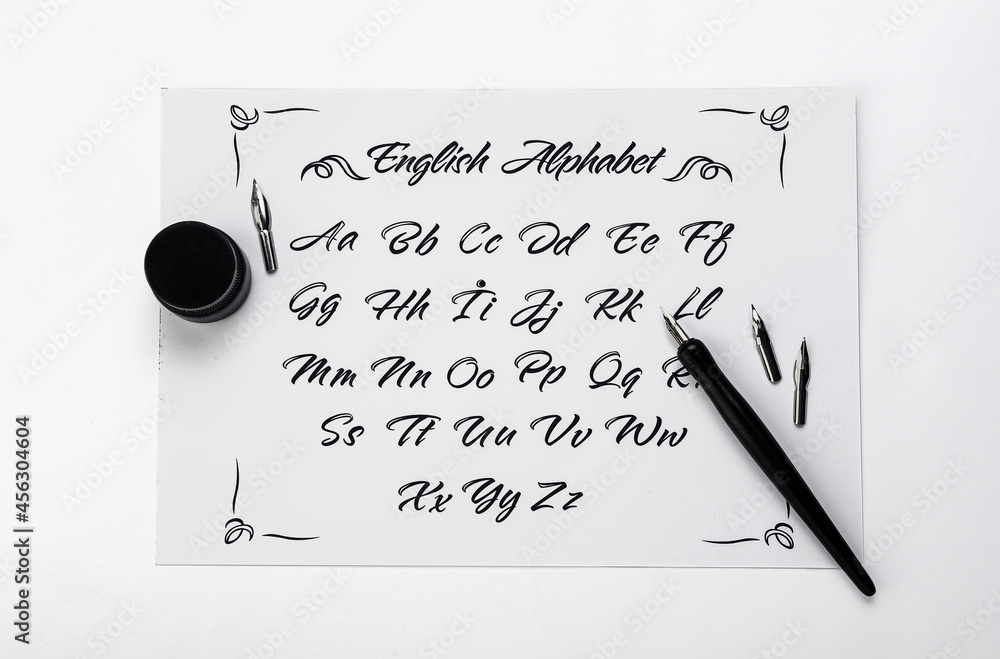 English Alphabet
Aa Bb Cc Dd Ee Ff
Gg Hh İi Jj Kk Ll
Mm Nn Oo Pp Qq R
Ss Tt Uu Vv Ww
Xx Yy Zz
Adobe Stock | #456304604